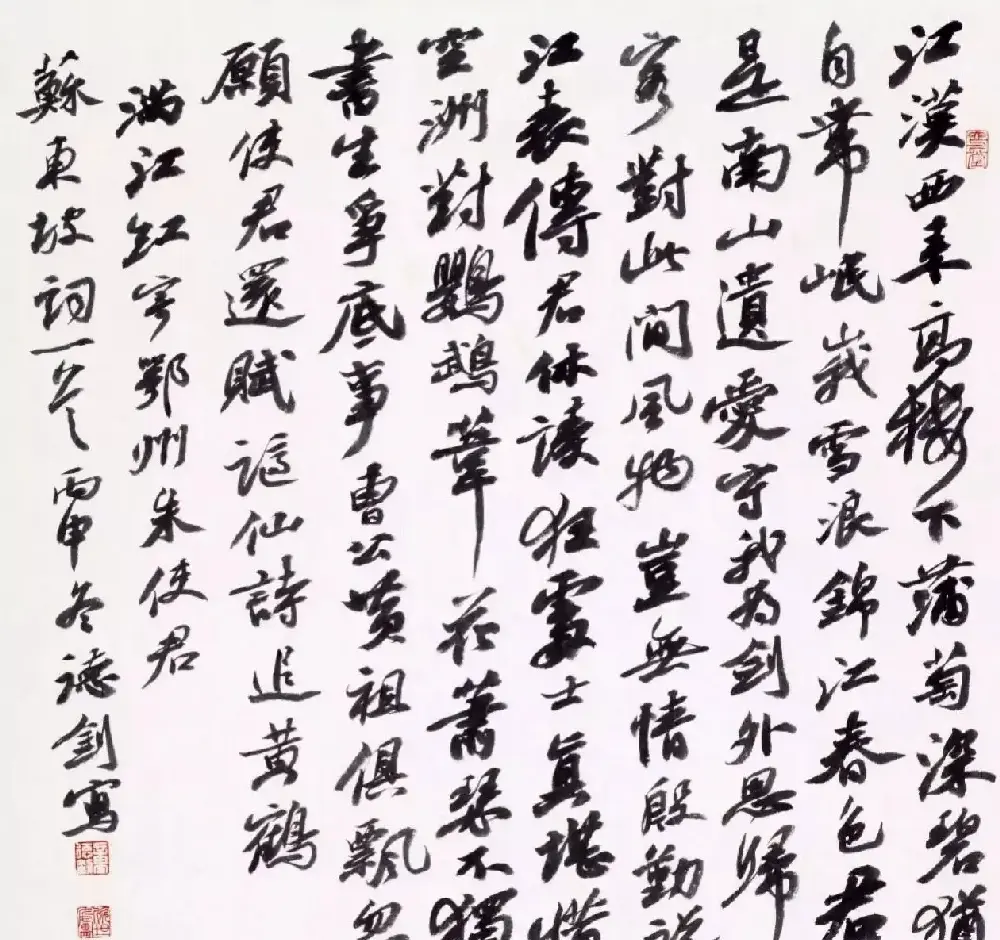 江漢西来高樓下蒲萄深碧猶
自帶岷峨雪浪錦江春色君
是南山遺愛守我为劍外思歸
客對此間風物豈無情殷勤說
江表傳君休讀狂處士真堪惜
空洲對鸚鵡葦花蕭瑟不獨
書生爭底事曹公黃祖俱飄忽
願使君還賦謫仙詩追黃鶴
滿江紅寄鄂州朱使君
蘇東坡詞一首丙申冬德劍寫